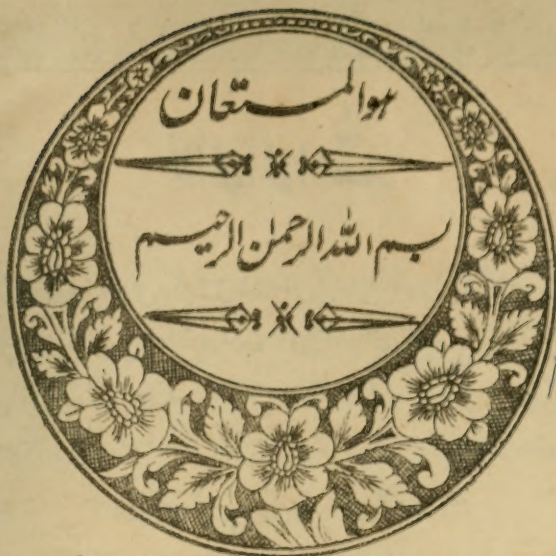 ہوالمستعان
بسم اللہ الرحمٰن الرحیم